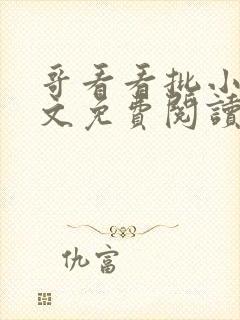 哥看看批小
文免費閱讀
仇富